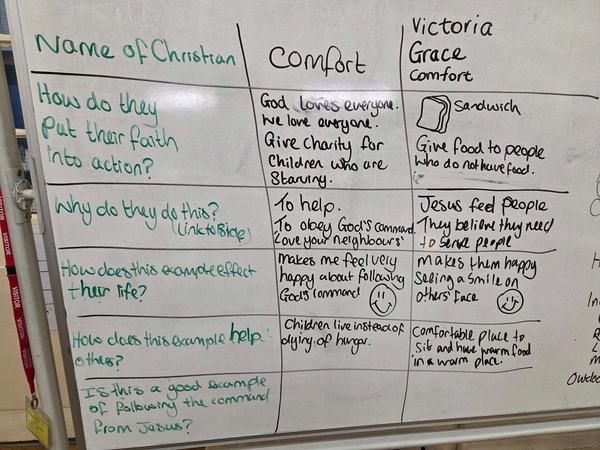 Name of Christian
Comfort
Victoria
Grace
Comfort
How do they
put their faith
into action?
God loves everyone.
We love everyone.
Give charity for
Children who are
Starving.
Sandwich
Give food to people
who do not have food.
Why do they do this?
(Link to Bible)
To help.
To obey God's command
'Love your neighbours'
Jesus feel people
They believe they need
to serve people
How does this example effect
their life?
makes me feel very
happy about following
God's command
makes them happy
Seeing a smile on
others' face
How does this example help
others?
Children live instead of
dying of hunger.
Comfortable place to
sit and have warm food
in a warm place.
Is this a good example
of following the command
from Jesus?
VISITOR
VISITOR
VISITOR